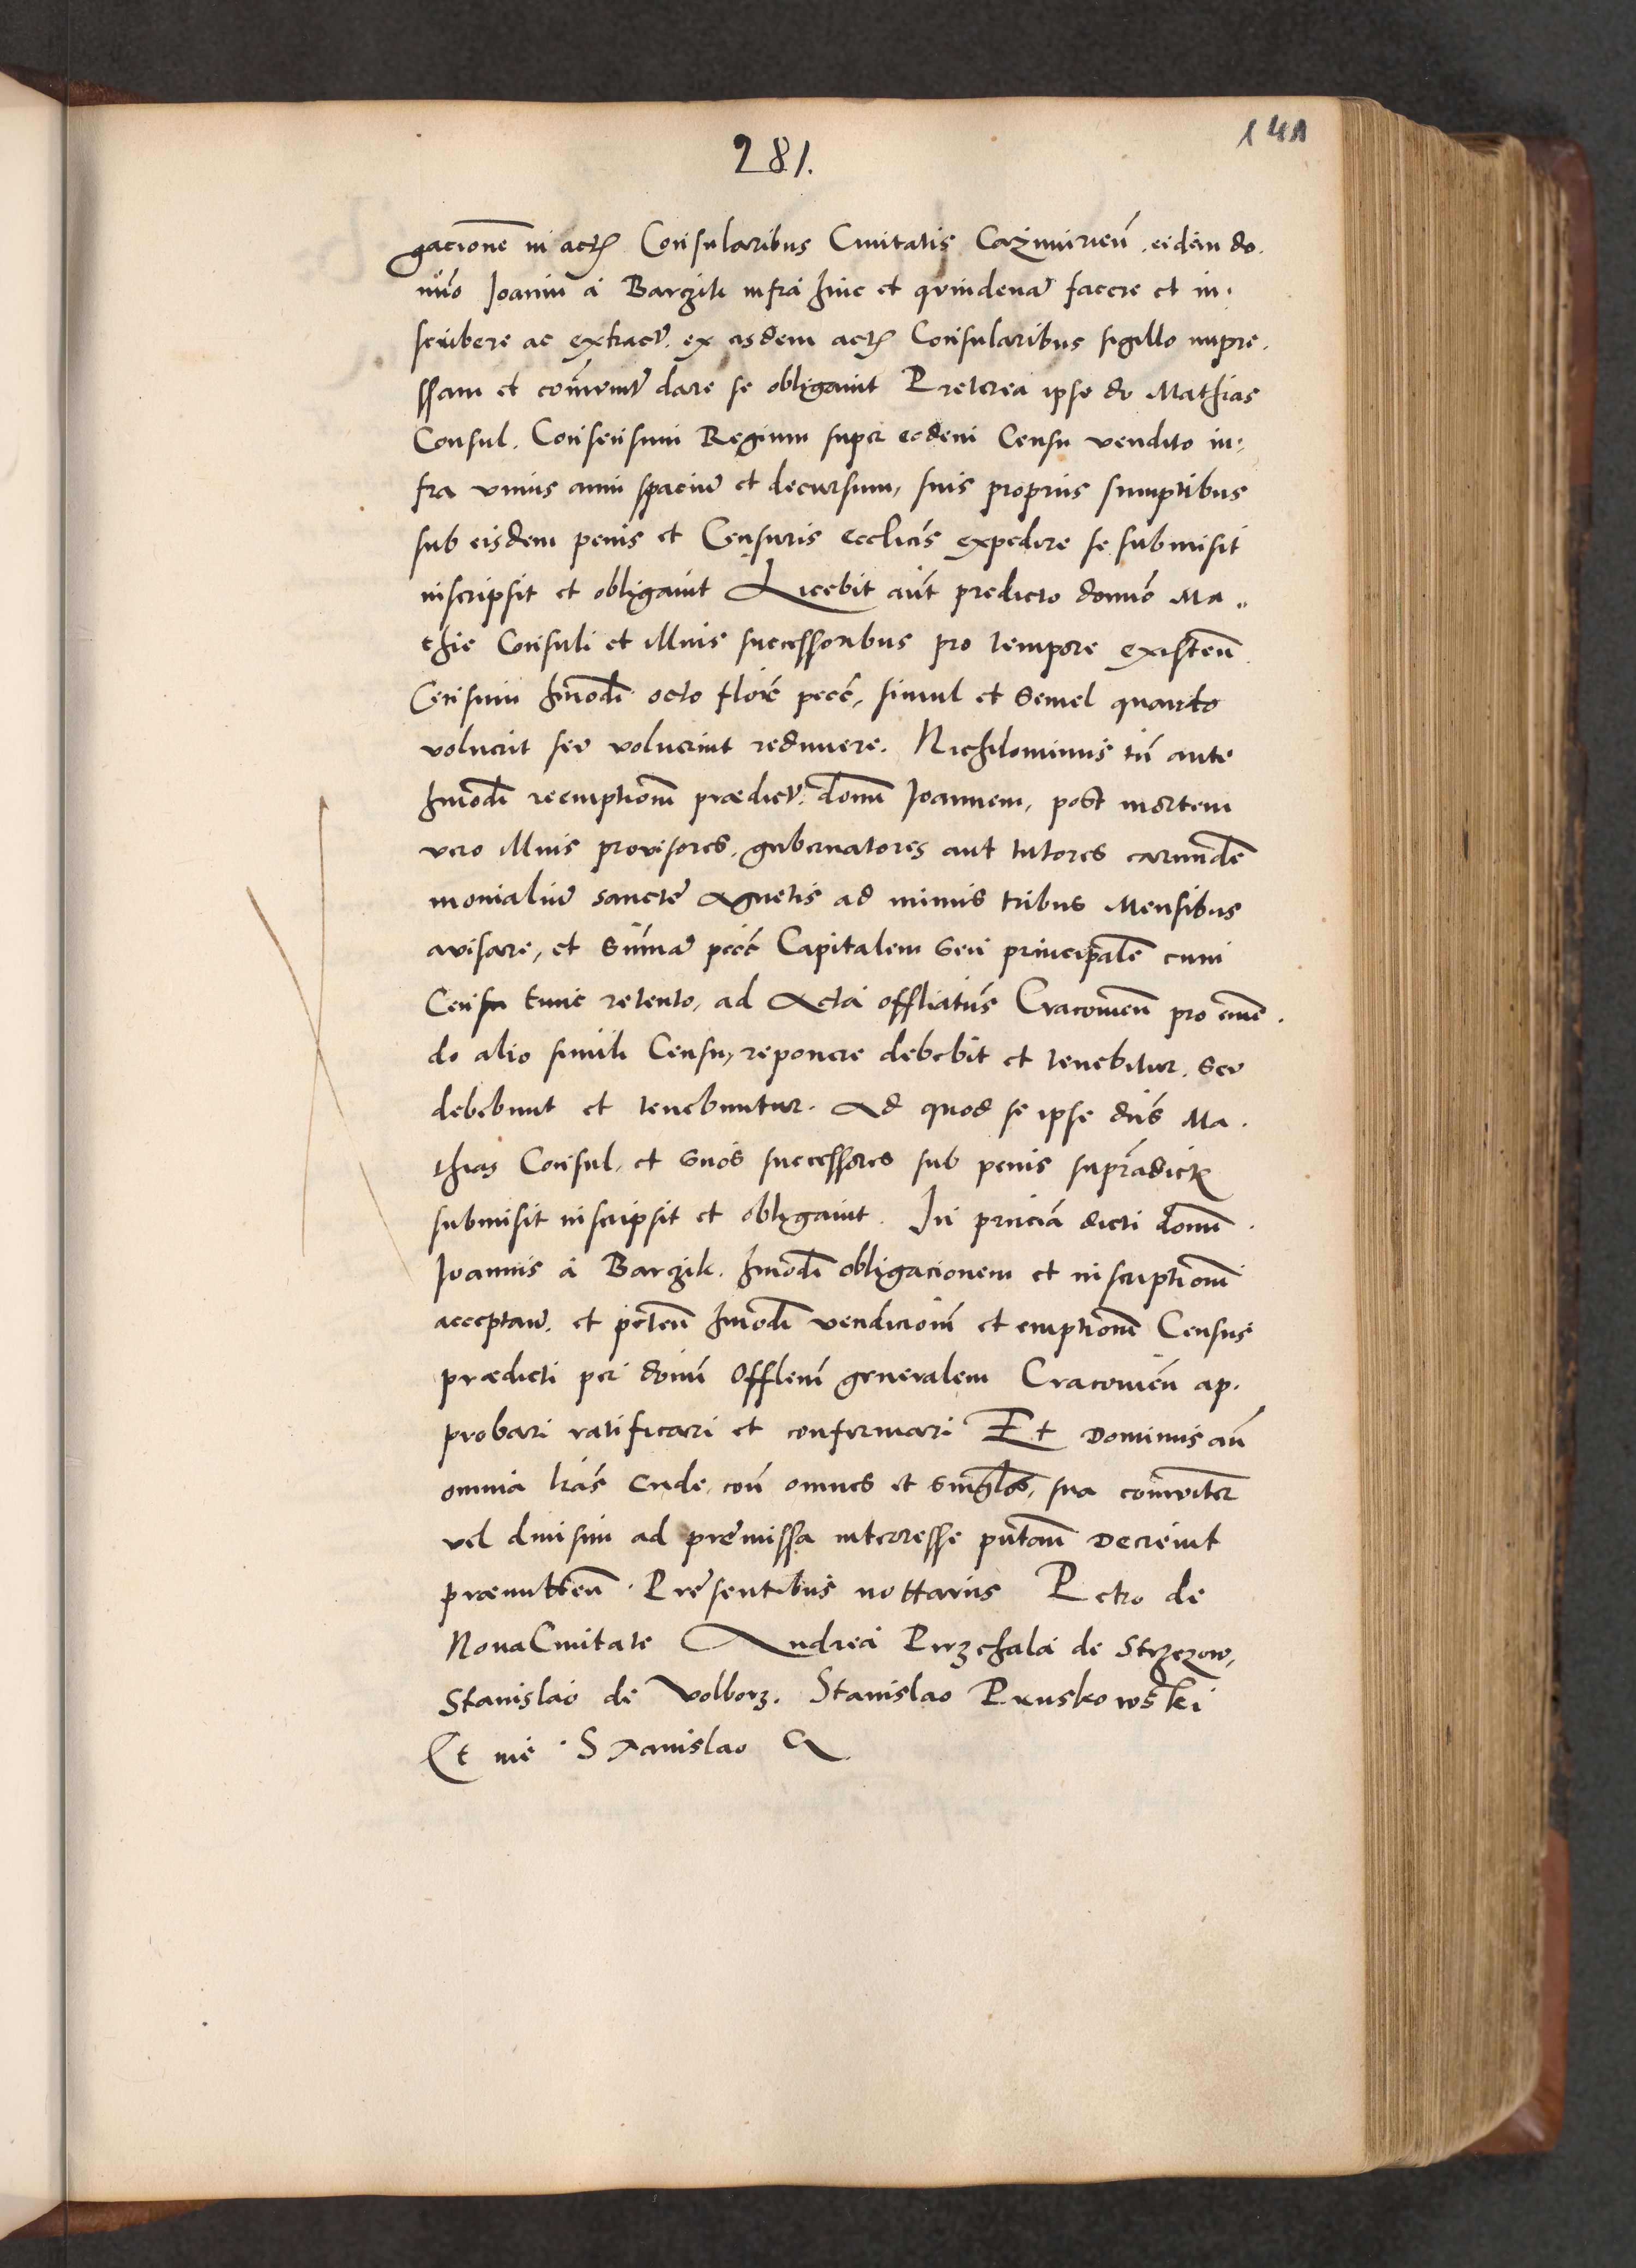 281.
141
gacionē in actꝭ Consularibus Ciuitatis Cazimirień. eidem do.
mīo Joanni á Barzili infrá hinc et quindenā facere et in.
scribere ac extractū. ex eisdem actꝭ Consularibus sigillo impre.
ssam et cōmuniṫ dare se obligauit Preterea ipse do Mathias
Consul. Consensum Regium super eodem Censu vendito in:
fra vnius anni spaciū et decursum, suis proprijs sumptibus
sub eisdem penis et Censuris ecclicīs expedire se submisit
inscripsit et obligauit Licebit aūt predicto domō Ma.
thie Consuli et illius successoribus pro tempore existeń.
Censum hmōdi octo florē pecc̄, simul et semel quando
voluerit seu voluerint redimere. Nichilominus tn̄ ante
hmōdi reemptionē prædictū. domī Joannem, post mortem
vero illius prouisores, gubernatores aut tutores earundē
monialiū sanctæ Agnetis ad minus tribus Mensibus
auisare, et sum̄ā pecc̄ Capitalem seu principalē cum
Censu tunc retento, ad Acta offliatūs Cracouień pro emē.
do alio simili Censu, reponere debebit et tenebitur. seu
debebunt et tenebuntur. Ad quod se ipse dn̄s Ma.
thias Consul, et suos successores sub penis suprādictꝭ
submisit inscripsit et obligauit. In pn̄ciā dicti domī.
Joannis á Barzik. hmōdi obligacionem et inscriptionē
acceptań. et peteń hmōdi vendicionē et emptionē Census
prædicti per dōm̄ Offlem̄ generalem Cracouień ap.
probari ratificari et confirmari Et Dominus aū
omnia lrās Ende. con̄ omnes et singlos, sua cōmuniter
vel diuisim ad premissa interesse putań Decreuit
præmitteń. Presentibus nottarijs Petro de
Noua Ciuitate Andrea Przechala de Strzezow,
Stanislao de Volborz. Stanislao Pruskowski
Et me Stanislao &